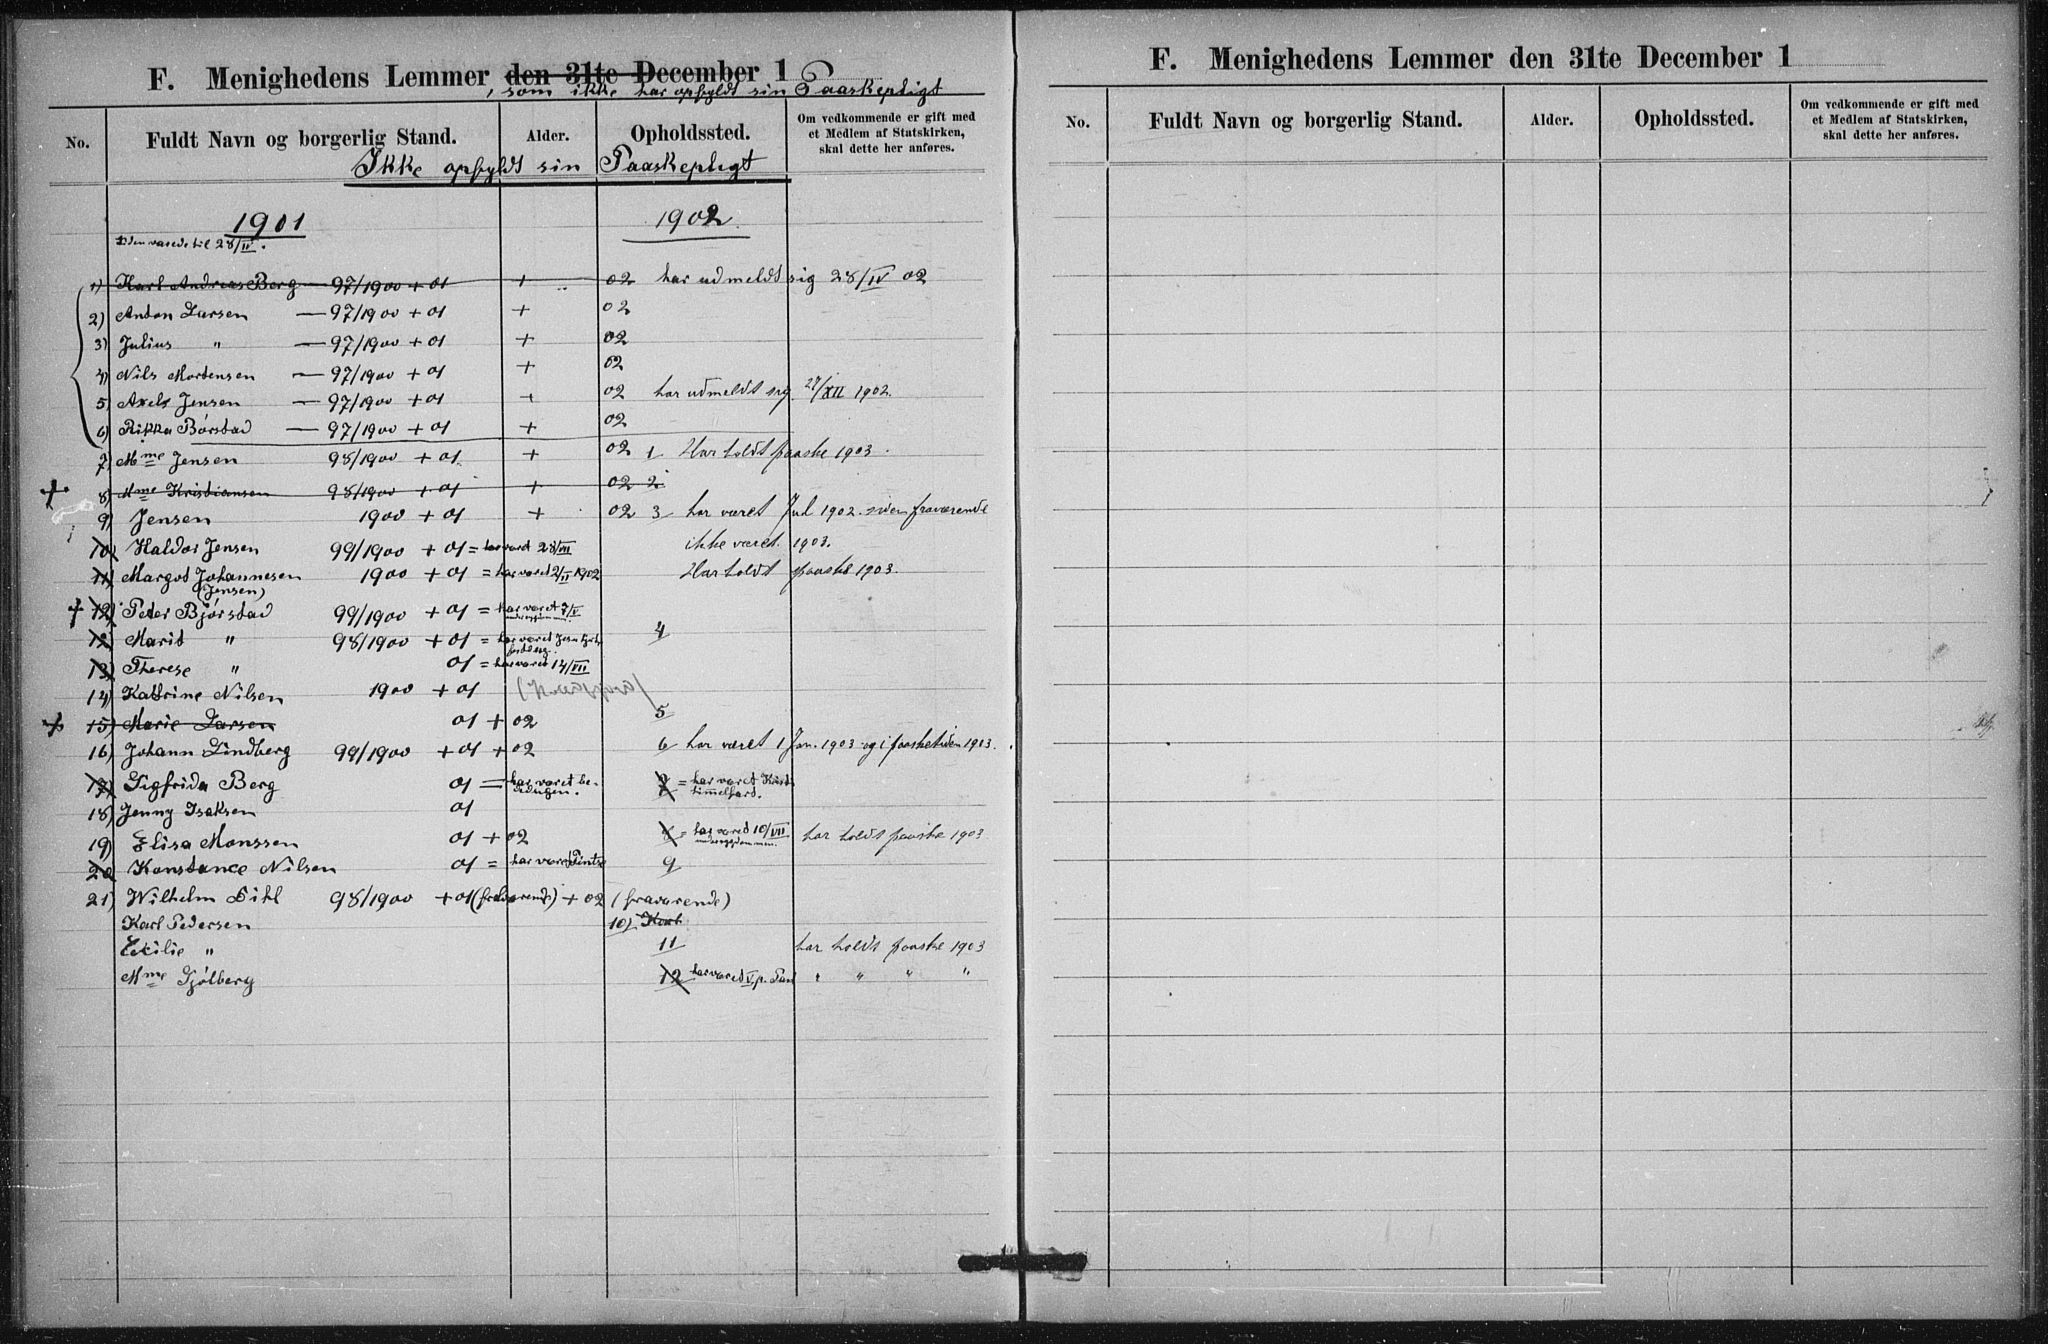 F. Menighedens Lemmer den 31te December 1
, som ikke har opfyldt sin Paaskepligt
No. Fuldt Navn og borgerlig Stand. Alder. Opholdssted. Om vedkommende er gift med
et Medlem af Statskirken,
skal dette her anføres.
Ikke opfyldt sin Paaskepligt
1901 1902
Den varede til 28/IV.
1) Karl Andreas Berg — 97/1900 + 01 + 02 har udmeldt sig 28/IV 02
2) Anton Larsen — 97/1900 + 01 + 02
3) Julius " — 97/1900 + 01 + 02
4) Nils Mortensen — 97/1900 + 01 + 02
5) Axels Jensen — 97/1900 + 01 + 02 har udmeldt sig 27/XII 1902.
6) Rikka Börstad — 97/1900 + 01 + 02
7) Mme Jensen 98/1900 + 01 + 02 1 Har holdt paaske 1903.
8) Mme Kristiansen 98/1900 + 01 + 02 2
9) Jensen 1900 + 01 + 02 3 har været Jul 1902 siden fraværende
10) Haldor Jensen 99/1900 + 01 = har været 28/VII ikke været 1903.
11) Margot Johannesen 1900 + 01 = har været 2/II 1902 Har holdt paaske 1903.
(Jensen)
12) Peter Bjørstad 99/1900 + 01 = har været 7/V
12) Marit " 98/1900 + 01 = har været 4
13) Therese " 01 = har været 14/VII
14) Katrine Nilsen 1900 + 01
15) Marie Larsen 01 + 02 5
16) Johann Lindberg 99/1900 + 01 + 02 6 har været 1 Jan. 1903 og i paasketiden 1903.
17) Sigfrida Berg 01 = har været be- 7 = har været Krist
himmelfart.
18) Jenny Isaksen 01
19) Elisa Monssen 01 + 02 = har været 10/VII har holdt paaske 1903
20) Konstance Nilsen 01 = har været Pintse 9
21) Wilhelm Dihl 98/1900 + 01 (fraværende) + 02 (fraværende)
Karl Pedersen 10) Karl
Cecilie " 11 har holdt paaske 1903
Mme Gjølberg 12 har været " " " "
F. Menighedens Lemmer den 31te December 1
No. Fuldt Navn og borgerlig Stand. Alder. Opholdssted. Om vedkommende er gift med
et Medlem af Statskirken,
skal dette her anføres.